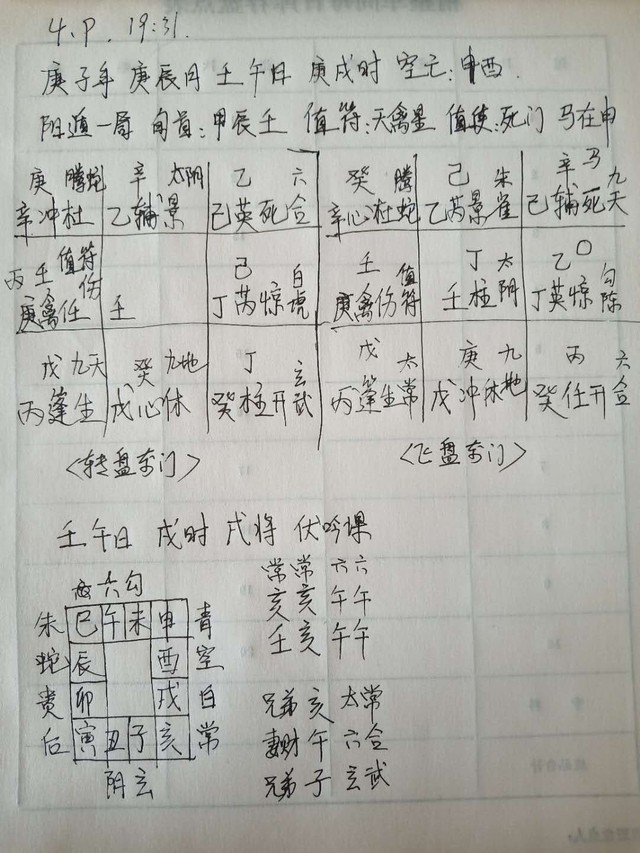 4. P. 19:31.
庚子年 庚辰月 壬午日 庚戌时 空亡:申酉.
阴遁一局 旬首:甲辰壬 值符:天禽星 值使:死门 马在申
庚 腾蛇 辛 太阴 乙 六 癸 腾 己 朱 辛 马 九
辛冲杜 乙辅景 己英死合 辛心杜蛇 乙芮景雀 己辅死天
丙 壬 值符 己 白 壬 值 丁 太 乙 O 勾
庚禽任 伤 壬 丁芮惊虎 庚禽伤符 壬柱阴 丁英惊陈
戊 九天 癸 九地 丁 玄 戊 太 庚 九 丙 六
丙蓬生 戊心休 癸柱开武 丙蓬生常 戊冲休地 癸任开合
<转盘奇门> <飞盘奇门>
壬午日 戌时 戌将 伏吟课
六勾 常常 六六
朱 巳午未申 青 亥亥 午午
蛇 辰 酉 空 壬亥 午午
贵 卯 戌 白 兄弟 亥 太常
后 寅丑子亥 常 妻财 午 六合
阴玄 兄弟 子 玄武